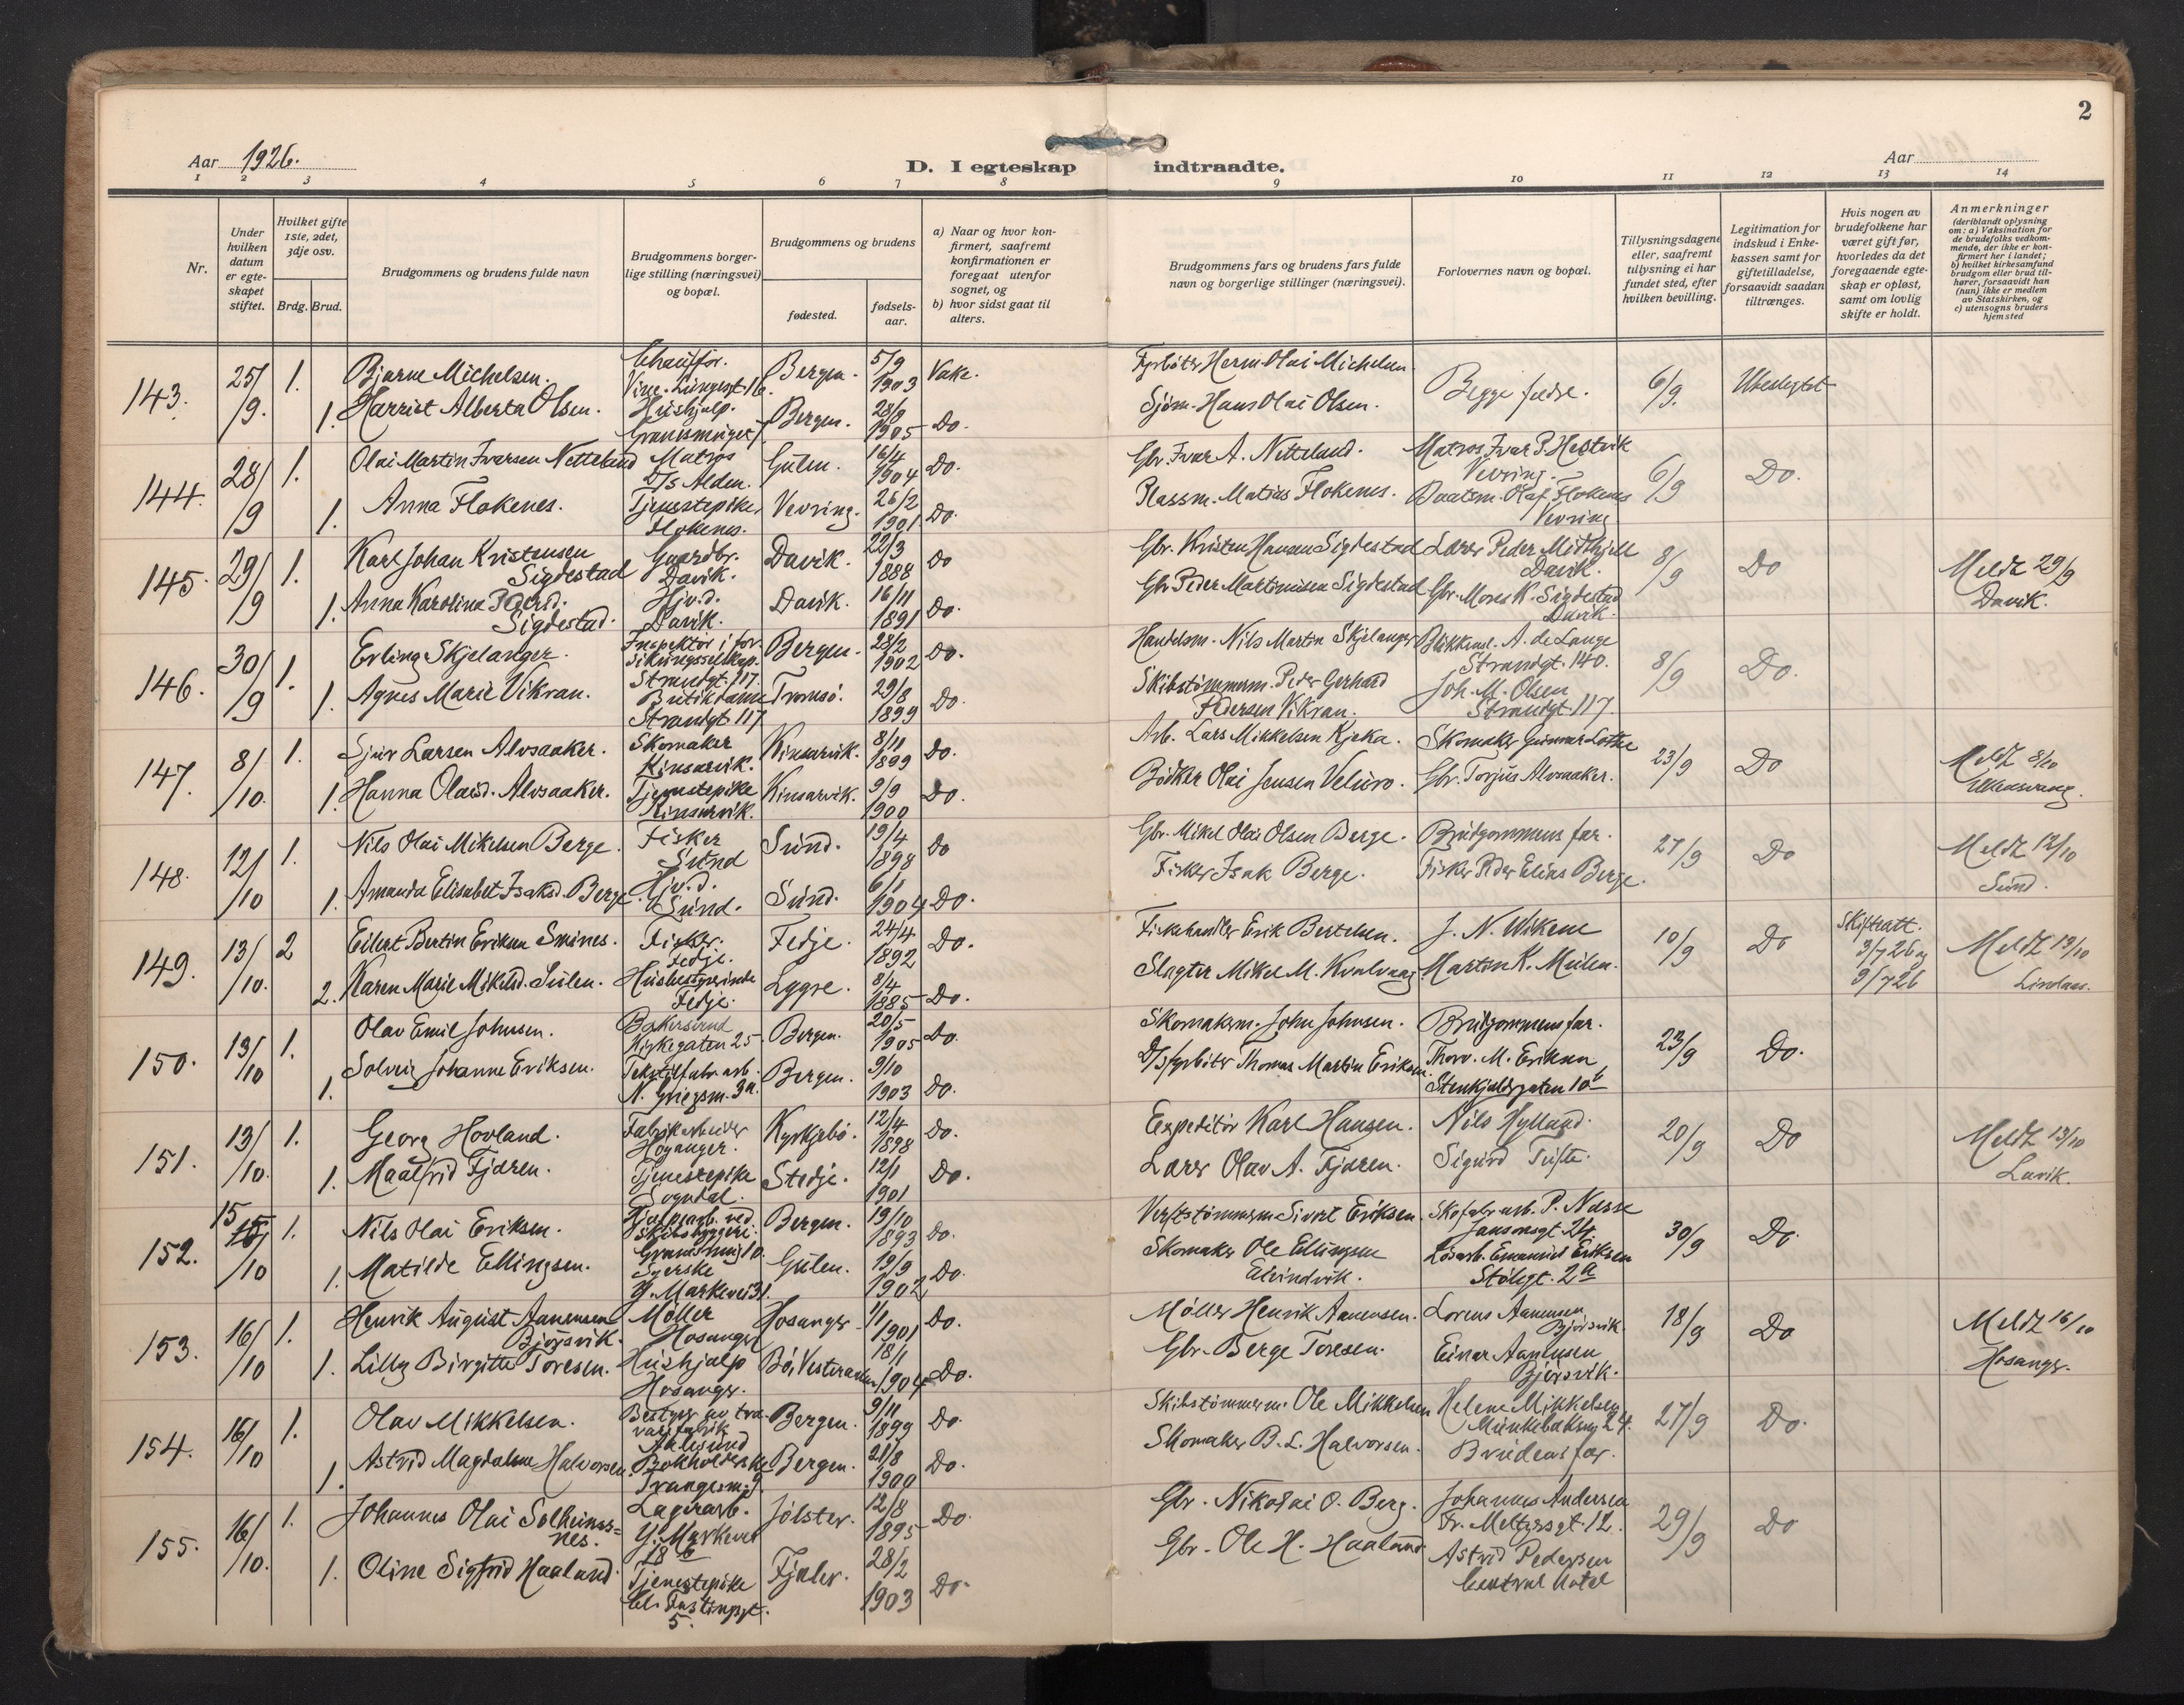 2
Aar 1926.
D. I egteskap indtraadte.
Aar
1 2 3 4 5 6 7 8 9 10 11 12 13 14
Nr.
Under hvilken datum er egteskapet stiftet.
Hvilket gifte 1ste, 2det, 3dje osv.
Brdg. Brud.
Brudgommens og brudens fulde navn
Brudgommens borgerlige stilling (næringsvei) og bopæl.
Brudgommens og brudens
fødested.
fødselsaar.
a) Naar og hvor konfirmert, saafremt konfirmationen er foregaat utenfor sognet, og
b) hvor sidst gaat til alters.
Brudgommens fars og brudens fars fulde navn og borgerlige stillinger (næringsvei).
Forlovernes navn og bopæl.
Tillysningsdagene eller, saafremt tillysning ei har fundet sted, efter hvilken bevilling.
Legitimation for indskud i Enkekassen samt for giftetilladelse, forsaavidt saadan tiltrænges.
Hvis nogen av brudefolkene har været gift før, hvorledes da det foregaaende egteskap er opløst, samt om lovlig skifte er holdt.
Anmerkninger (deriblandt oplysning om: a) Vaksination for de brudefolks vedkommende, der ikke er konfirmert her i landet; b) hvilket kirkesamfund brudgom eller brud tilhører, forsaavidt han (hun) ikke er medlem av Statskirken, og c) utensogns bruders hjemsted
143. 25/9. 1. Bjarne Michelsen. Chauffør. Bergen. 5/9 1903 Vake. Fyrbøter Herm. Olai Michelsen. Begge fedre. 6/9. Ubeslegtet
1. Harriet Alberta Olsen. Hushjælp. Bergen. 28/8 1905 Do. Sjøm. Hans Olai Olsen.
144. 28/9 1. Olai Martin Ivarsen Netteland Matros D/s Alden. Gulen. 16/4 1904 Do. Gbr. Ivar A. Netteland. Matros Ivar P. Hestvik Vevring. 6/9 Do.
1. Anna Flokenes. Tjenestepike, Flokenes. Vevring. 26/2 1901 Do. Plassm. Matias Flokenes. Baatsm. Olaf Flokenes Vevring
145. 29/9 1. Karl Johan Kristensen Sigdestad Gaardbr. Davik. Davik. 22/3 1888 Do Gbr. Kristen Hansen Sigdestad Lærer Peder Midthjell Davik. 8/9 Do Meldt 29/9 Davik.
1. Anna Karolina Pedersd. Sigdestad. Hjv.d. Davik. Davik. 16/11 1891 Do. Gbr. Peder Martinusen Sigdestad Gbr. Mons K. Sigdestad Davik.
146. 30/9 1. Erling Skjelanger. Inspektør i forsikringsselskap. Strandgt. 117. Bergen. 28/2 1902 Do. Handelsm. Nils Martin Skjelanger Blikkensl. A. de Lange Strandgt. 140. 8/9 Do.
1. Agnes Marie Vikran. Butikdame Strandgt 117. Tromsø. 29/8 1899 Do. Skibstømmerm. Peder Gerhard Pedersen Vikran. Joh. M. Olsen Strandgt. 117.
147. 8/10. 1. Sjur Larsen Alvsaaker. Skomaker Kinsarvik. Kinsarvik. 8/11 1899 Do. Arb. Lars Mikkelsen Kjeka. Skomaker Gunnar Lothe 23/9 Do Meldt 8/10 Ullensvang.
1. Hanna Olaisd. Alvsaaker. Tjenestepike Kinsarvik. Kinsarvik. 9/9 1900 Do. Bødker Olai Jensen Velure. Gbr. Torjus Alvsaaker.
148. 12/10 1. Nils Olai Mikelsen Berge. Fisker Sund Sund. 19/4 1898 Do Gbr. Mikel Olai Olsen Berge. Brudgommens far. 27/9 Do Meldt 12/10 Sund.
1. Amanda Elisabet Isaksd. Berge. Hjv.d. Sund. Sund. 6/1 1904 Do. Fisker Isak Berge. Fisker Peder Elias Berge.
149. 13/10. 2 Eilert Bertin Eriksen Smines. Fisker. Fedje. Fedje. 24/4 1892 Do. Fiskehandler Erik Bertelsen. J. N. Wikene 10/9 Do Skifteatt. 3/7 26 og 9/7 26 Meldt 13/10 Lindaas.
2. Karen Marie Mikelsd. Sulen. Husbestyrerinde Fedje. Lygre. 8/4 1885 Do. Slagter Mikel M. Kvalvaag. Martin K. Mulen.
150. 13/10 1. Olav Emil Johnsen. Bakersvend Kirkegaten 25. Bergen. 20/5 1905 Do. Skomakerm. John Johnsen. Brudgommens far. 23/9 Do.
1. Solveig Johanne Eriksen. Tekstilfabr. arb. N. Griegsm. 3a. Bergen. 9/10 1903 Do. D/s fyrbøter Thomas Martin Eriksen. Thorv. M. Eriksen Stenkjeldergaten 10b
151. 13/10. 1. Georg Hovland. Fabrikarbeider Høyanger. Kyrkjebø. 12/4 1898 Do. Expeditør Karl Hansen. Nils Hylland. 20/9 Do Meldt 13/10 Lavik.
1. Maalfrid Fjæren. Tjenestepike Sogndal. Stedje. 12/1 1901 Do. Lærer Olav A. Fjæren. Sigurd Tufte.
152. 15/10 1. Nils Olai Eriksen. Hjelpearb. ved Skibsbyggeri. Bergen. 19/10 1893 Do. Verftstømmerm Sivert Eriksen. Skofabr. arb. P. Nesse Jansonsgt 24. 30/9 Do.
1. Matilde Ellingsen. Syerske Y. Markevei 31. Gulen. 19/9 1902 Do. Skomaker Ole Ellingsen Eivindvik. Løsarb. Emanuel Eriksen Stølegt. 2a
153. 16/10 1. Henrik August Aanensen Bjørsvik. Møller Hosanger Hosanger 1/1 1901 Do. Møller Henrik Aanensen. Lorens Aanensen Bjørsvik. 18/9 Do Meldt 16/10 Hosanger.
1. Lilly Birgitte Toresen. Hushjælp Hosanger. Bø i Vesteraalen 18/1 1904 Do. Gbr. Berge Toresen. Einar Aanensen Bjørsvik.
154. 16/10 1. Olav Mikkelsen. Bestyrer av trævarefabrik Aalesund Bergen. 9/11 1899 Do. Skibstømmerm. Ole Mikkelsen Helene Mikkelsen Munkebaksmg 24. 27/9 Do.
1. Astrid Magdalene Halvorsen. Bokholderske Bergen. 21/8 1900 Do. Skomaker B. L. Halvorsen. Brudens far.
155. 16/10. 1. Johannes Olai Solheimsnes. Lagerarb. Y. Markevei 18 b Jølster. 12/8 1895 Do. Gbr. Nikolai O. Berg. Johannes Andersen Fr. Meltzersgt. 12. 29/9 Do
1. Oline Sigfrid Haaland. Tjenestepike 5. Fjaler. 28/2 1903 Do. Gbr. Ole H. Haaland Astrid Pedersen Central Hotel